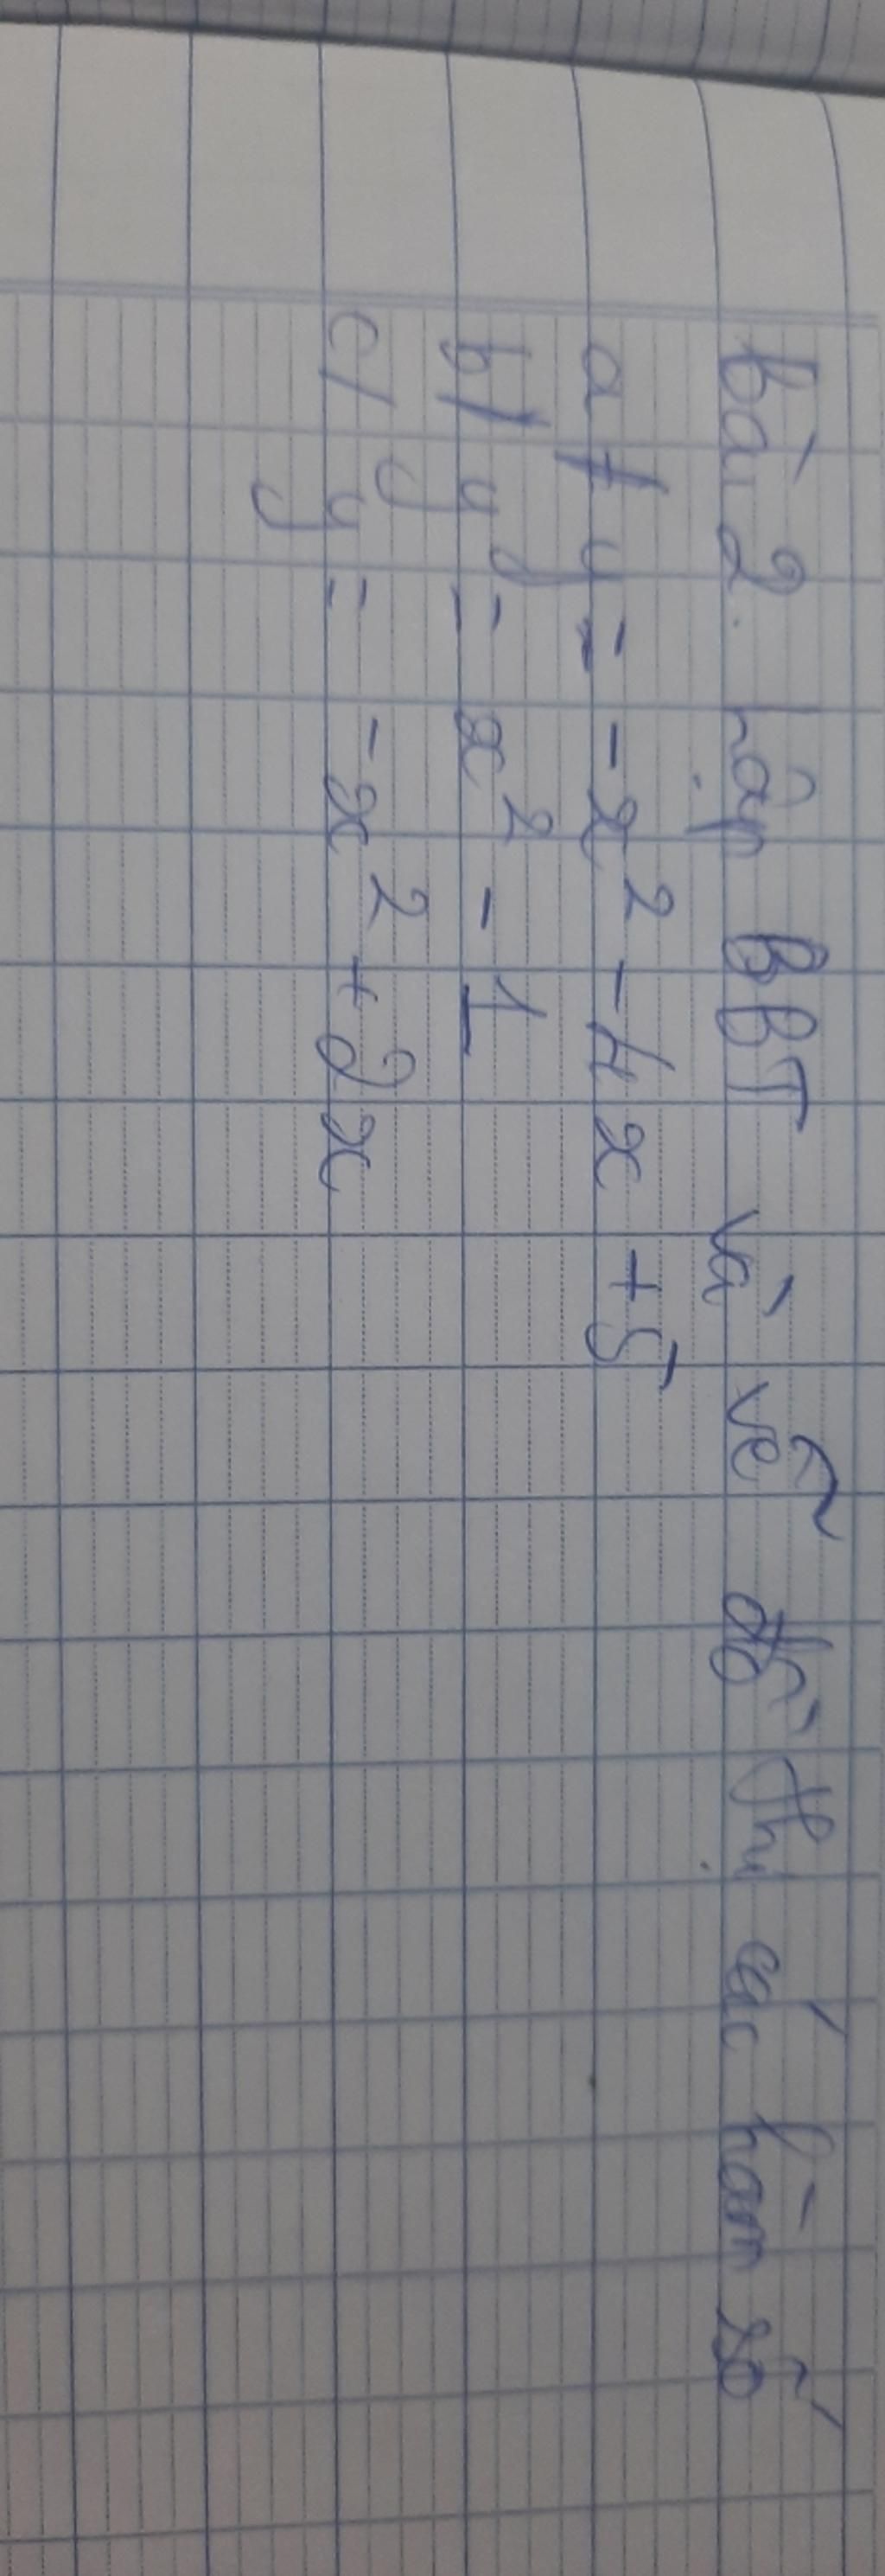 bài 2. lập BBT và vẽ đồ thị các hàm số
a/ y = -x² - 4x + 5
b/ y = x² - 1
c/ y = -x² + 2x